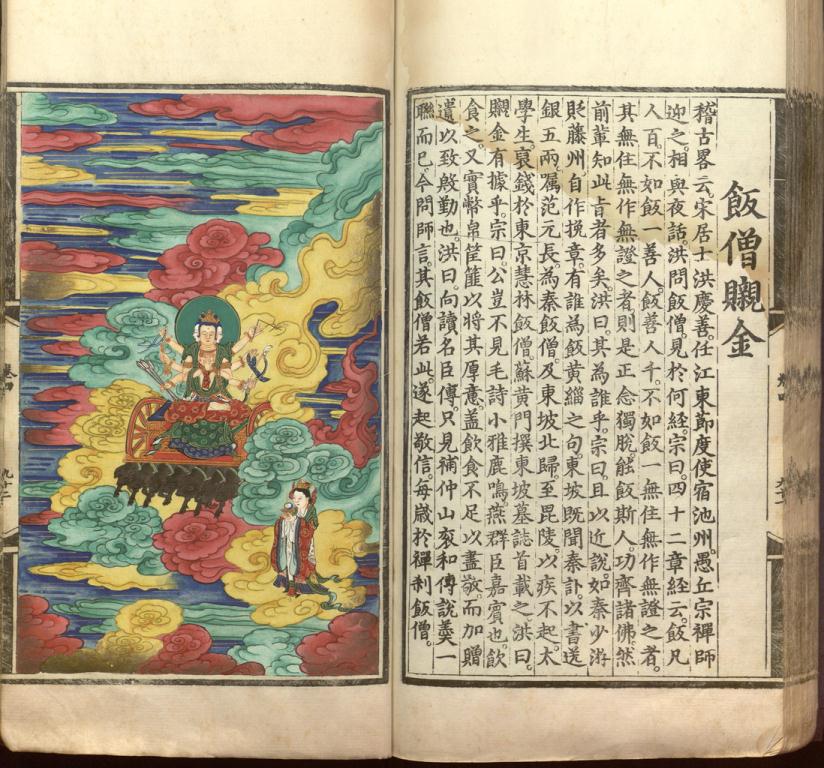 飯僧䞋金
稽古畧云。宋居士洪慶善。任江東節度使宿池州。愚丘宗禪師
迎之。相與夜話。洪問飯僧見於何經。宗曰。四十二章經云。飯凡
人百。不如飯一善人。飯善人千。不如飯一無住無作無證之者。
其無住無作無證之者。則是正念獨脫。能飯斯人。功齊諸佛。然
前輩知此㫖者多矣。洪曰。其為誰乎。宗曰。且以近說。如秦少游
貶藤州。自作挽章。有誰為飯黃緇之句。東坡既聞秦訃。以書送
銀五兩。囑范元長為秦飯僧。及東坡北歸。至毘陵。以疾不起。太
學生裒錢於東京慧林飯僧。蘇黃門撰東坡墓誌首載之。洪曰。
䞋金有據乎。宗曰。公豈不見毛詩小雅鹿鳴。燕群臣嘉賓也。飲
食之。又實幣帛筐篚以將其厚意。蓋飲食不足以盡敬。而加贈
遺以致慇勤也。洪曰。向讀名臣傳。只見補仲山袞和傅說羹一
聯而已。今問師言。其飯僧若此。遂起敬信。每歲於禪剎飯僧。
卷四
九十二